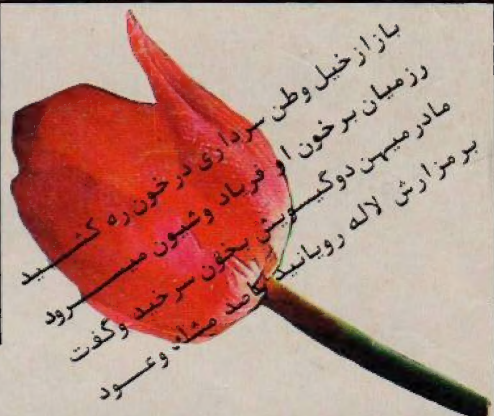 باز از خیل وطن سرداری در خون ره کشید
رزمیان بر خون او فریاد و شیون میرود
مادر میهن دو گیسویش بخون سرخید و گفت
بر مزارش لاله رویانید باصد مشک و عود